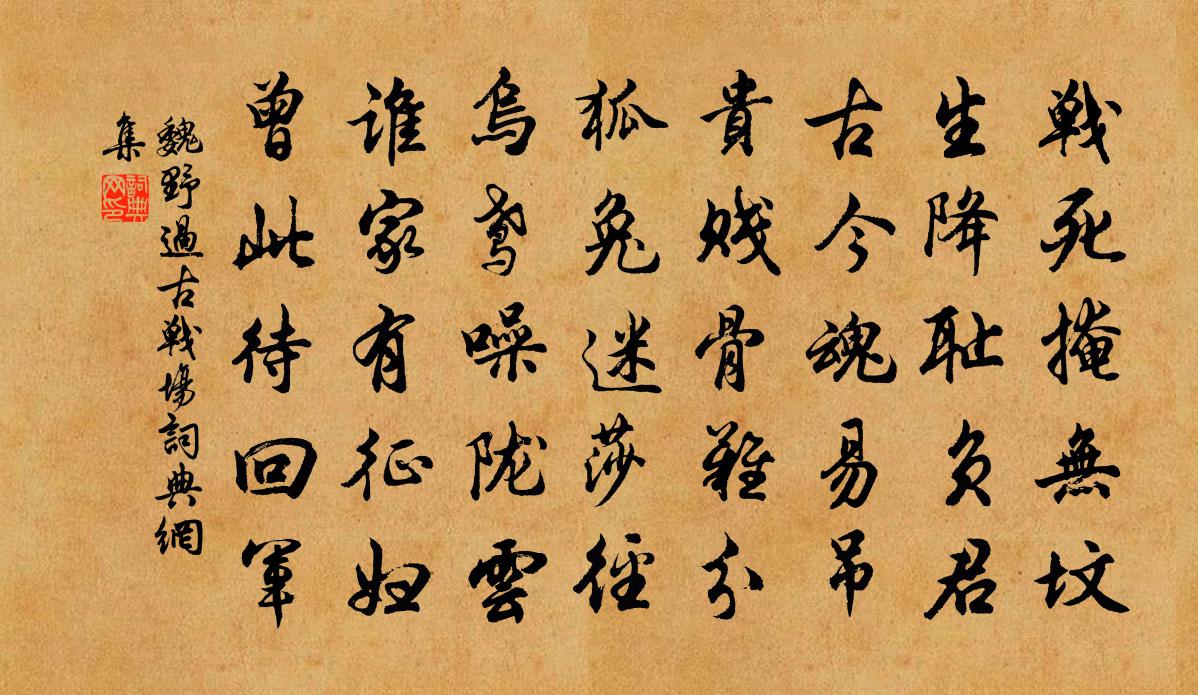 戰死掩無墳
生降耻負君
古今魂易吊
貴賤骨難分
狐兔迷莎徑
烏鳶噪陇雲
誰家有征婦
曾此待回軍
魏野過古戰場詞典網
集
詞典網印